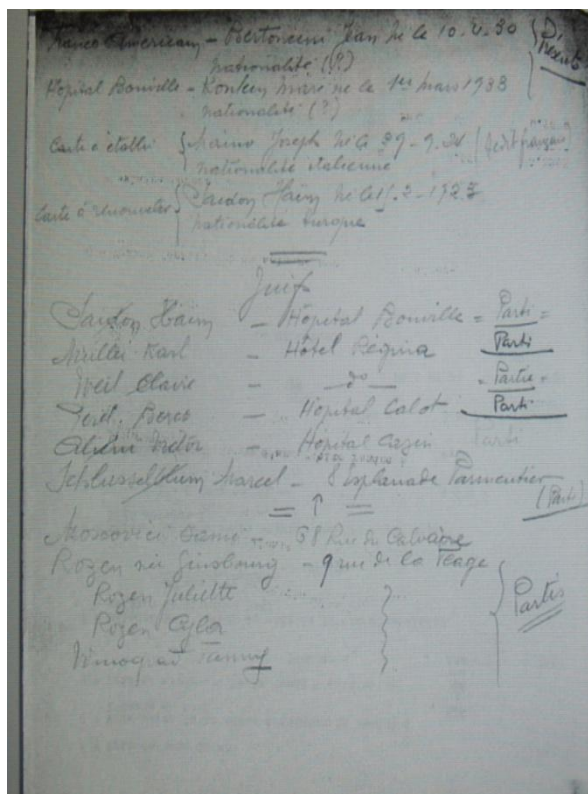 Franco Américain - Bertoncini Jean né le 10.4.30
nationalité (?)
Hôpital Bouville - né le 1er mars 1933
nationalité (?)
Carte à établir Joseph né le 29-9.21 (dit français)
nationalité italienne
Carte à renouveler Saidon Haïm né le 1.3-1927
nationalité turque
Juifs
Saidon Haïm - Hôpital Bouville = Parti =
Karl - Hôtel Régina Parti
Weil Claire - do - - Partie -
Berco - Hôpital Calot Parti
Victor - Hôpital Cazin Parti
Schlusselblum Marcel - 8 Esplanade Parmentier
(Parti)
= ↑ =
Mossovici 68 Rue du Calvaire
Rozen née Ginsbourg - 9 rue de la Plage
Rozen Juliette
Rozen Partis
Winograd Fanny